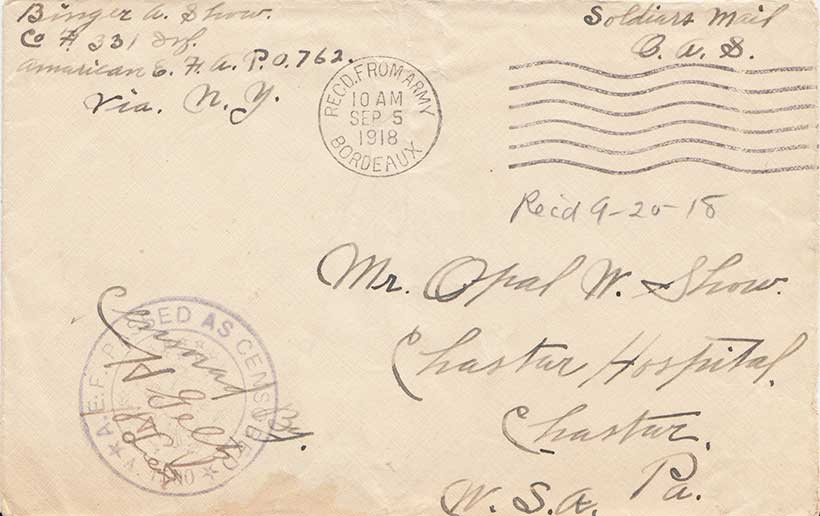 Binger A. Show.
Co F. 331 Inf.
American E. F. A. P. O. 762.
Via. N. Y.
Soldiars Mail
O. A. S.
REC'D. FROM ARMY
10 AM
SEP 5
1918
BORDEAUX
Recd 9-20-18
Mr. Opal W. Show.
Chastar Hospital,
Chastar.
Pa.
U. S. A.
A.E.F. PASSED AS CENSORED
By.